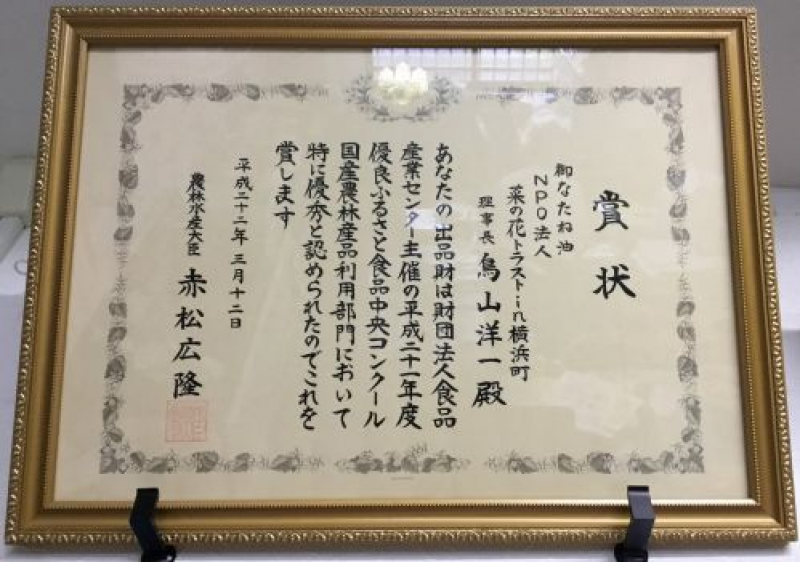 賞状
御なたね油
NPO法人
菜の花トラストin横浜町
理事長 鳥山洋一殿
あなたの出品財は財団法人食品
産業センター主催の平成二十一年度
優良ふるさと食品中央コンクール
国産農林産品利用部門において
特に優秀と認められたのでこれを
賞します
平成二十二年三月十二日
農林水産大臣 赤松広隆